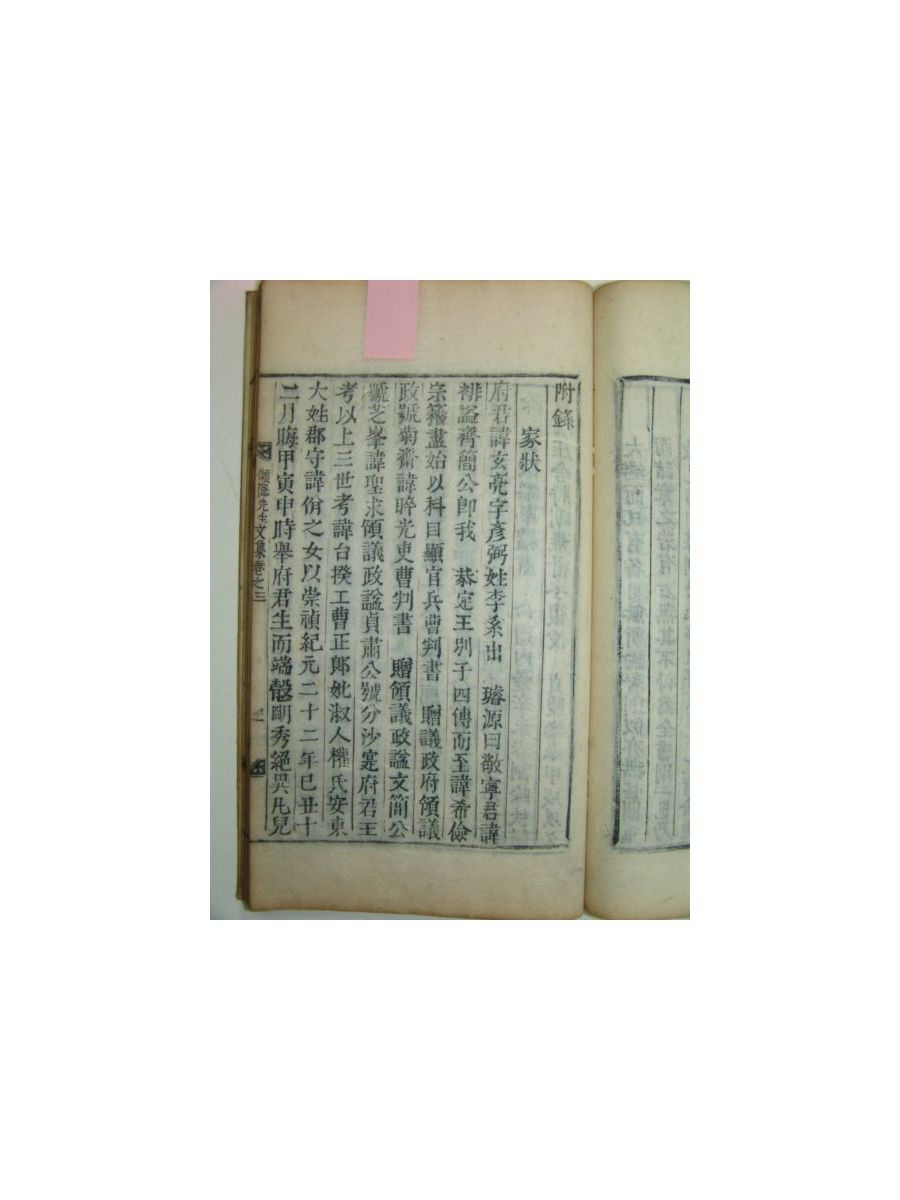 附錄
家狀
府君諱玄亮字彦弼姓李系出 璿源曰敬寧君諱
裶謚齊簡公卽我 恭定王別子四傳而至諱希儉
宗籍盡始以科目顯官兵曹判書 贈議政府領議
政號菊齋諱睟光吏曹判書 贈領議政謚文簡公
號芝峯諱聖求領議政謚貞肅公號分沙寔府君王
考以上三世考諱台揆工曹正郞妣淑人權氏安東
大姓郡守諱佾之女以崇禎紀元二十二年己丑十
二月晦甲寅申時擧府君生而端慤明秀絕異凡兒
先生文集卷之三
一